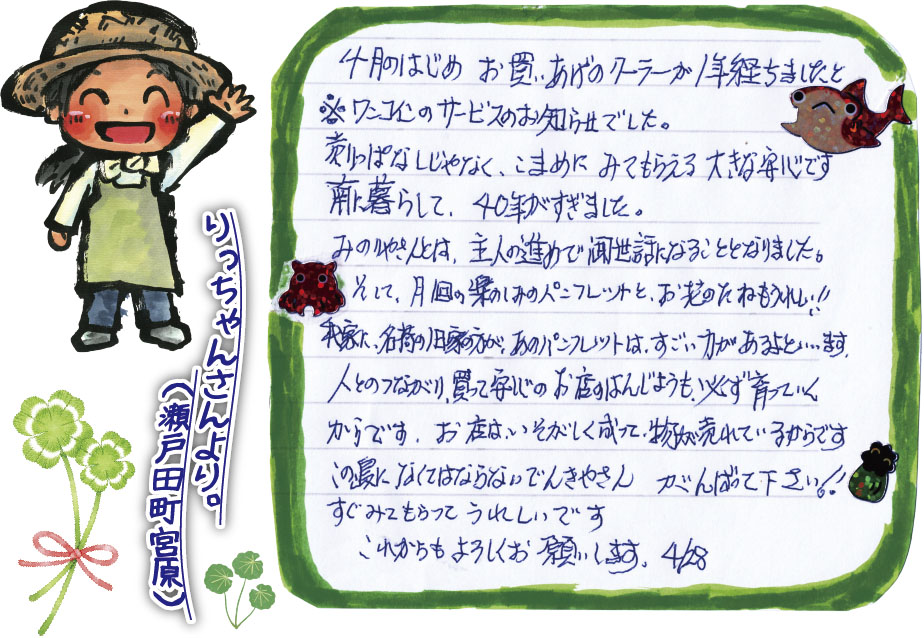 4月のはじめ お買いあげのクーラーが1年経ちましたと
※ワンコインのサービスのお知らせでした。
売りっぱなしじゃなく、こまめに みてもらえる 大きな安心です
南に暮らして、40年がすぎました。
みのりやさんとは、主人の進めで お世話になることとなりました。
そして、月1回の楽しみのパンフレットと、お花のたねもうれしい!!
我家に、名荷の旧家の方が、あのパンフレットは、すごい力があるよといいます。
人とのつながり、買って安心の お店のはんじょうも、必ず育っていく
からです、お店は、いそがしく成って、物が売れているからです
この島に なくてはならないでんきやさん がんばって下さい!!
すぐみてもらって うれしいです
これからも よろしくお願いします。4/28
りっちゃんさんより。
(瀬戸田町宮原)